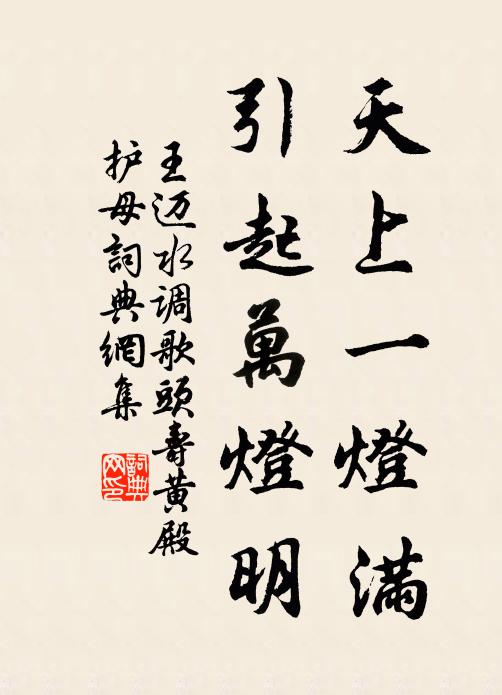 天上一燈滿
引起萬燈明
王迈水调歌頭壽黄殿
护母詞典網集
詞典网印